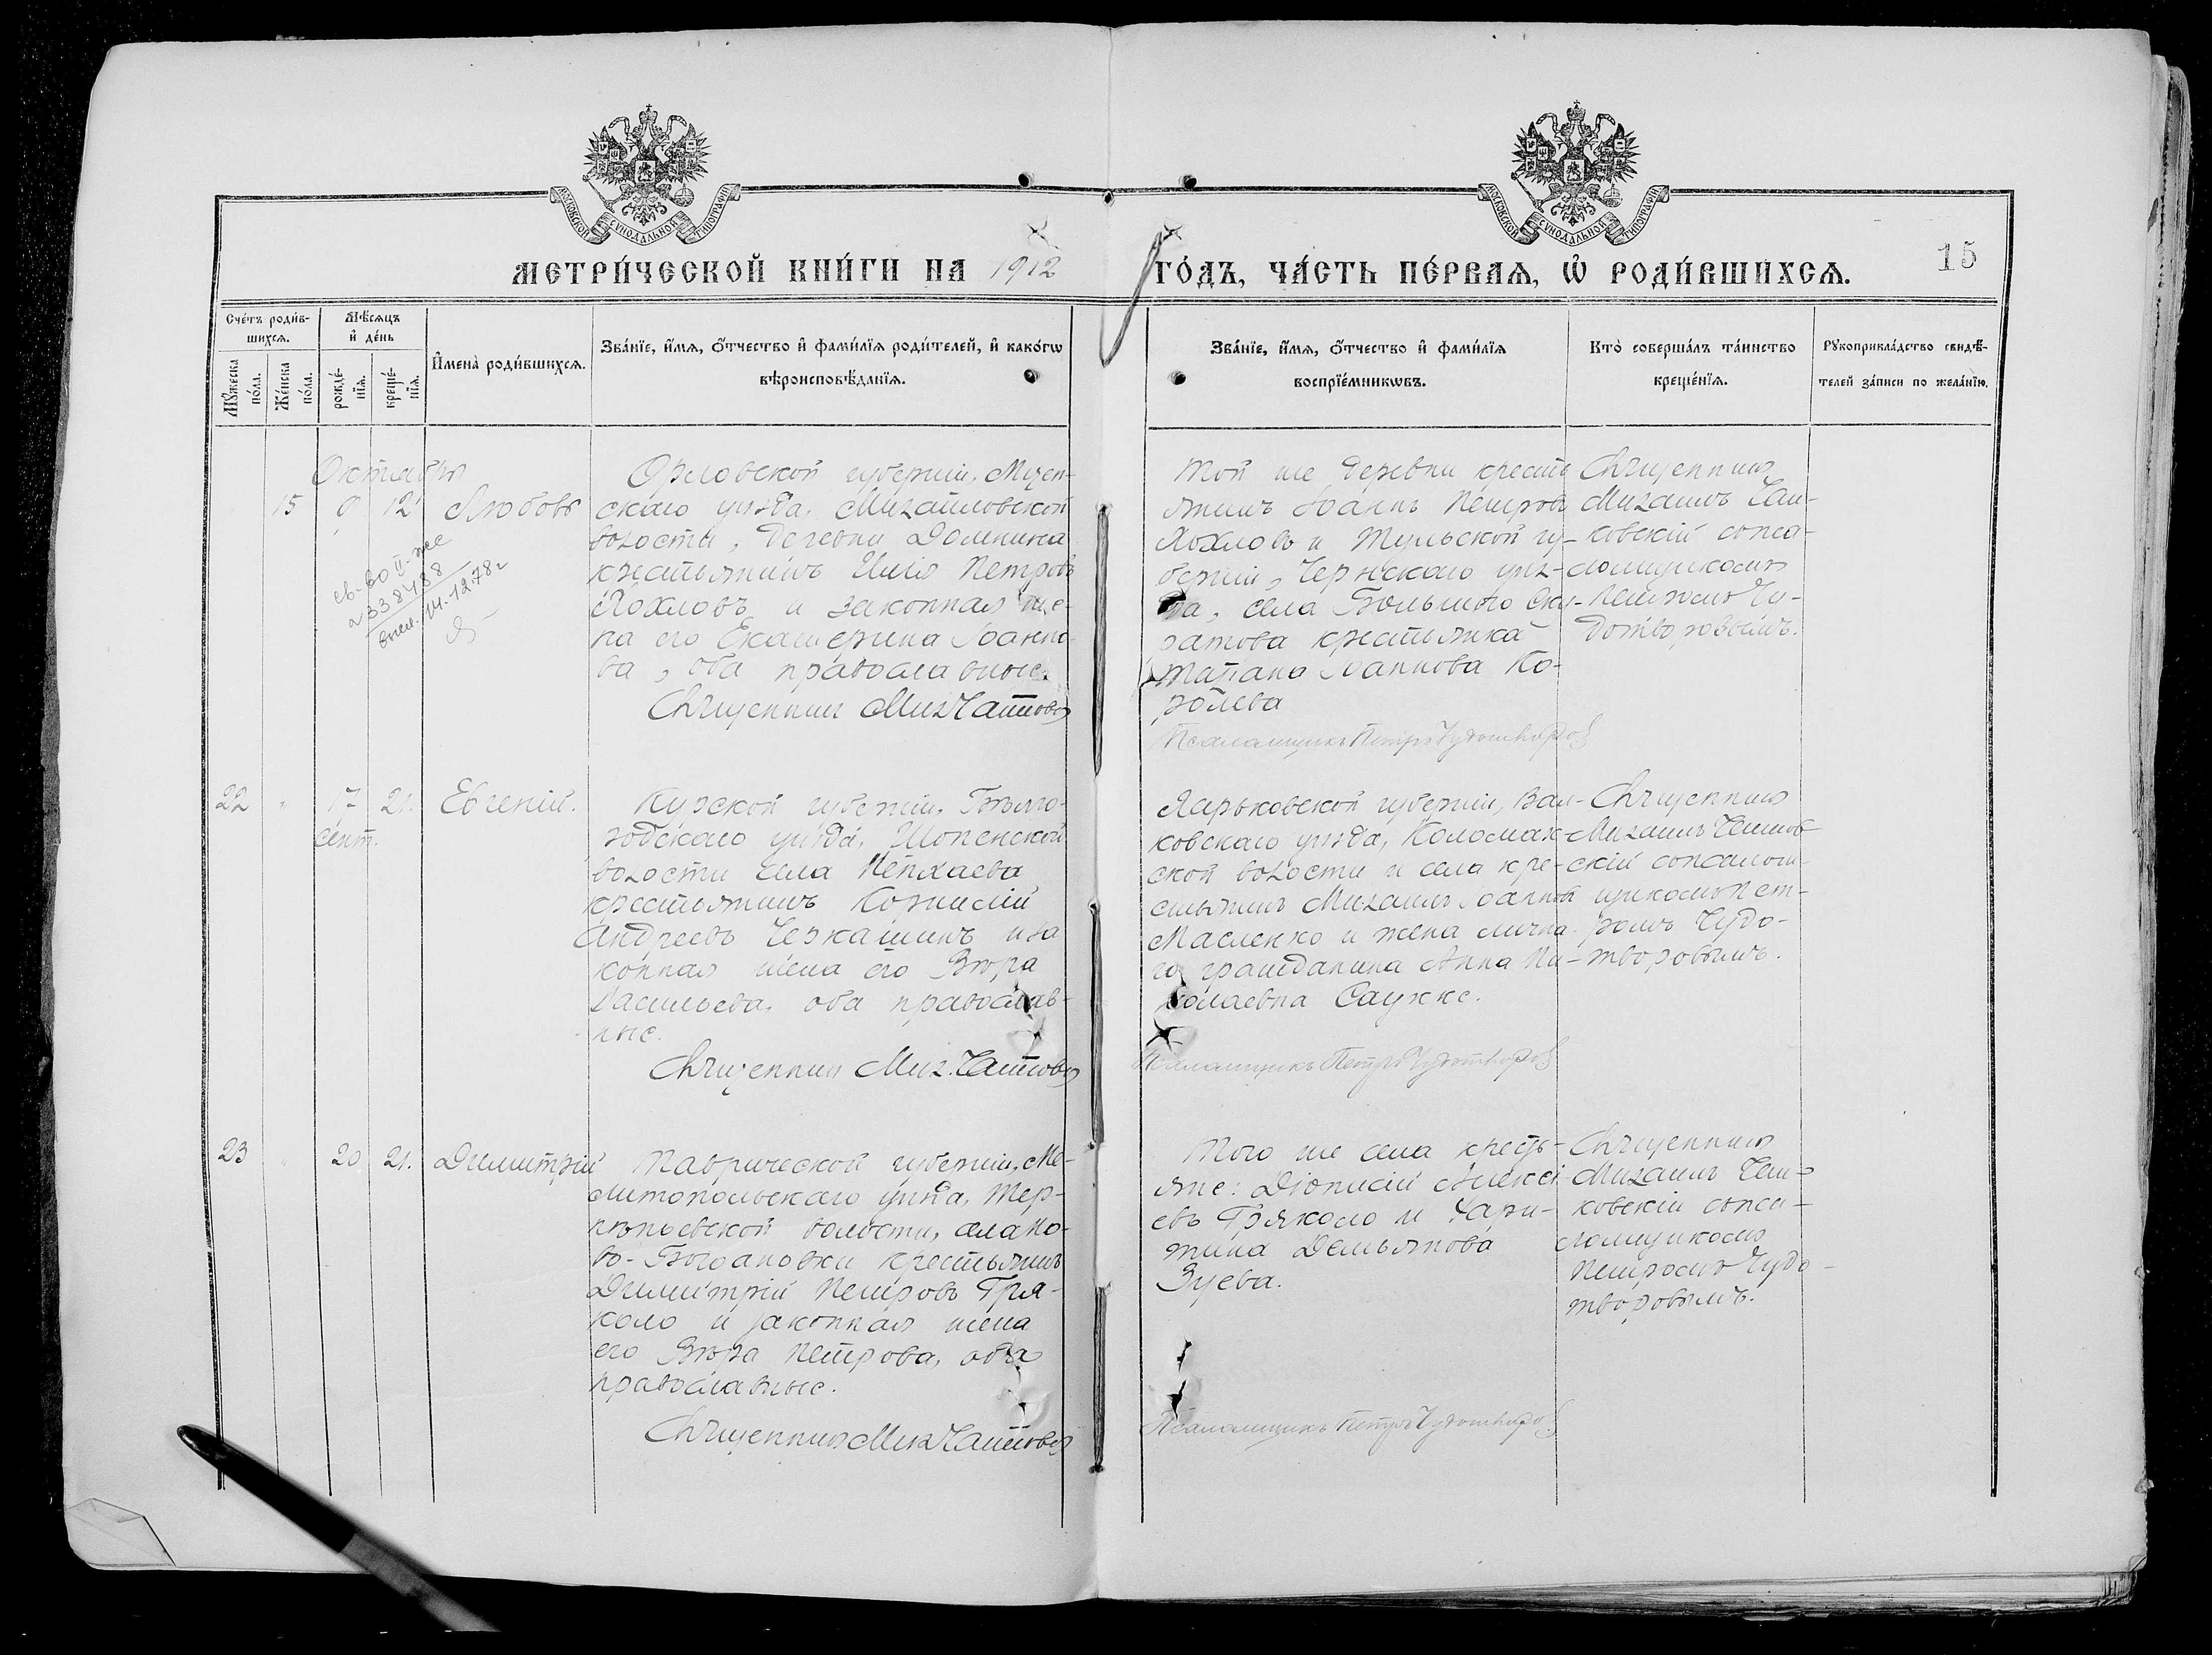 МОСКОВСКОЙ СѴНОДАЛЬНОЙ ТИПОГРАФІИ
МОСКОВСКОЙ СѴНОДАЛЬНОЙ ТИПОГРАФІИ
МЕТРИ́ЧЕСКОЙ КНИ́ГИ НА 1912 ГО́ДЪ, ЧА́СТЬ ПЕ́РВАѦ, Ѡ РОДИ́ВШИХСѦ.
15
Сче́тъ роди́в-
шихсѧ.
Мꙋ́жеска по́ла.
Же́нска по́ла.
Мѣ́сѧцъ
и҆ де́нь
рожде́-
нїѧ.
креще́-
нїѧ.
И҆мена̀ роди́вшихсѧ.
Зва́нїе, и҆́мѧ, ѻ҆́тчество и҆ фами́лїѧ роди́телей, и҆ како́гѡ
вѣроисповѣ́данїѧ.
Зва́нїе, и҆́мѧ, ѻ҆́тчество и҆ фами́лїѧ
воспрїе́мникѡвъ.
Кто̀ соверша́лъ та́инство
креще́нїѧ.
Рꙋкоприкла́дство свидѣ́-
телей за́писи по жела́нїю.
Октября
15 9 12 Любовь
св-во II-же
338488
14.12.78г
Орловской губерніи, Мцен-
скаго уѣзда, Михайловской
волости, деревни Домнина
крестьянинъ Илья Петровъ
Хохловъ и законная же-
на его Екатерина Іоанно-
ва, оба православные.
Священникъ Мих Чатковс
Той же деревни кресть
янинъ Іоаннъ Петровъ
Хохловъ и Тульской гу-
берніи, Чернскаго уѣз-
да, села Большого Ску-
ратова крестьянка
Татіана Іоаннова Ко-
ролева
Псаломщикъ Петръ Чудотворов
Священникъ
Михаилъ Чат-
ковскій съ пса-
ломщикомъ
Петромъ Чу-
дотворовымъ.
22 " 17 21. Евгеній.
сент.
Курской губерніи, Бѣлго-
родскаго уѣзда, Шопенской
волости села Пепхаева
крестьянинъ Корнилій
Андреевъ Черкашинъ и за
конная жена его Вѣра
Васильева, оба православ-
ные.
Священникъ Мих. Чатковс
Харьковской губерніи, Вал-
ковскаго уѣзда, Коломак-
ской волости и села кре-
стьянинъ Михаилъ Іоанновъ
Масленко и жена лична-
го гражданина Анна Ни-
колаевна Саукке.
Псаломщикъ Петръ Чудотворов
Священникъ
Михаилъ Чатков-
скій съ псалом-
щикомъ Пет-
ромъ Чудо-
творовымъ.
23 " 20 21. Димитрій
Таврической губерніи, Ме-
литопольскаго уѣзда, Тер-
пѣньевской волости, села Но-
во-Богдановки крестьянинъ
Димитрій Петровъ Гря-
коло и законная жена
его Вѣра Петрова, оба
православные.
Священникъ Мих Чатковс
Того же села кресть-
яне: Діонисій Алексѣ
евъ Гряколо и Хари-
тина Демьянова
Зуева.
Псаломщикъ Петръ Чудотворов
Священникъ
Михаилъ Чат-
ковскій съ пса-
ломщикомъ
Петромъ Чудо-
творовымъ.